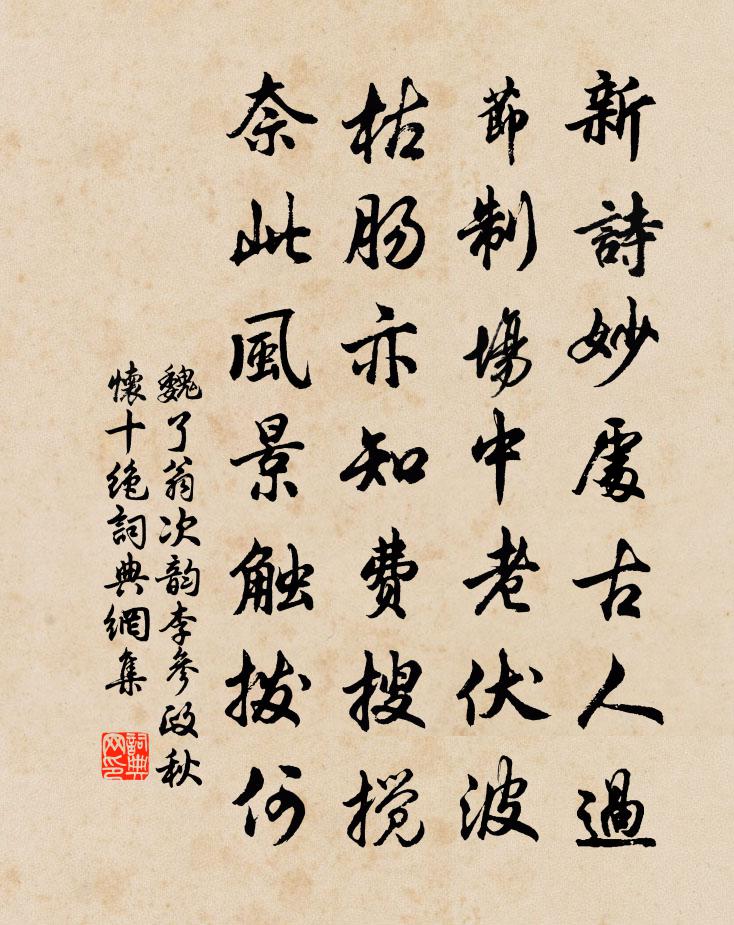 新詩妙處古人過
節制場中老伏波
枯肠亦知費搜揽
奈此風景触拨何
魏了翁次韵李參政秋
懷十絶詞典網集
詞典网印